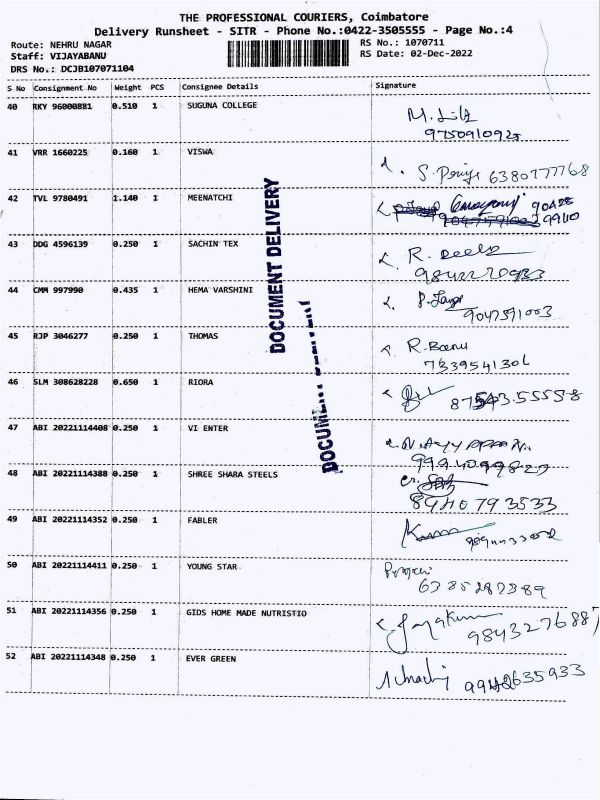 THE PROFESSIONAL COURIERS, Coimbatore
Delivery Runsheet - SITR - Phone No.:0422-3505555 - Page No.:4
Route: NEHRU NAGAR
Staff: VIJAYABANU
DRS No.: DCJB107071104
RS No.: 1070711
RS Date: 02-Dec-2022
S No Consignment No Weight PCS Consignee Details Signature
40 RKY 96000881 0.510 1 SUGUNA COLLEGE
9750910925
41 VRR 1660225 0.160 1 VISWA
S. Priya 6380777768
42 TVL 9780491 1.140 1 MEENATCHI
43 DDG 4596139 0.250 1 SACHIN TEX
R.
9842220933
44 CMM 997990 0.435 1 HEMA VARSHINI
9047591003
45 RJP 3046277 0.250 1 THOMAS
R. Banu
7339541301
46 SLM 308628228 0.650 1 RIORA
47 ABI 20221114408 0.250 1 VI ENTER
48 ABI 20221114388 0.250 1 SHREE SHARA STEELS
8940793533
49 ABI 20221114352 0.250 1 FABLER
50 ABI 20221114411 0.250 1 YOUNG STAR
51 ABI 20221114356 0.250 1 GIDS HOME MADE NUTRISTIO
Jayakumar 9843276887
52 ABI 20221114348 0.250 1 EVER GREEN
9942635933
DOCUMENT DELIVERY